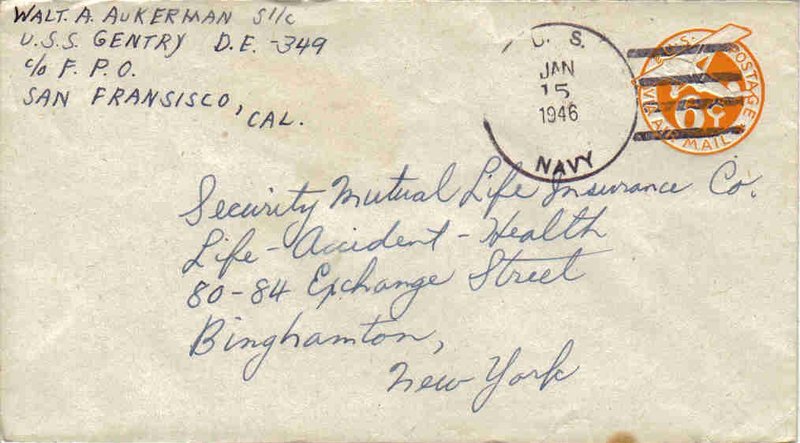 WALT. A. AUKERMAN S1/c
U.S.S. GENTRY D.E.-349
c/o F.P.O.
SAN FRANSISCO, CAL.
U. S.
JAN
15
1946
NAVY
U.S. POSTAGE
6¢
VIA AIR MAIL
Security Mutual Life Insurance Co.
Life-Accident-Health
80-84 Exchange Street
Binghamton,
New York